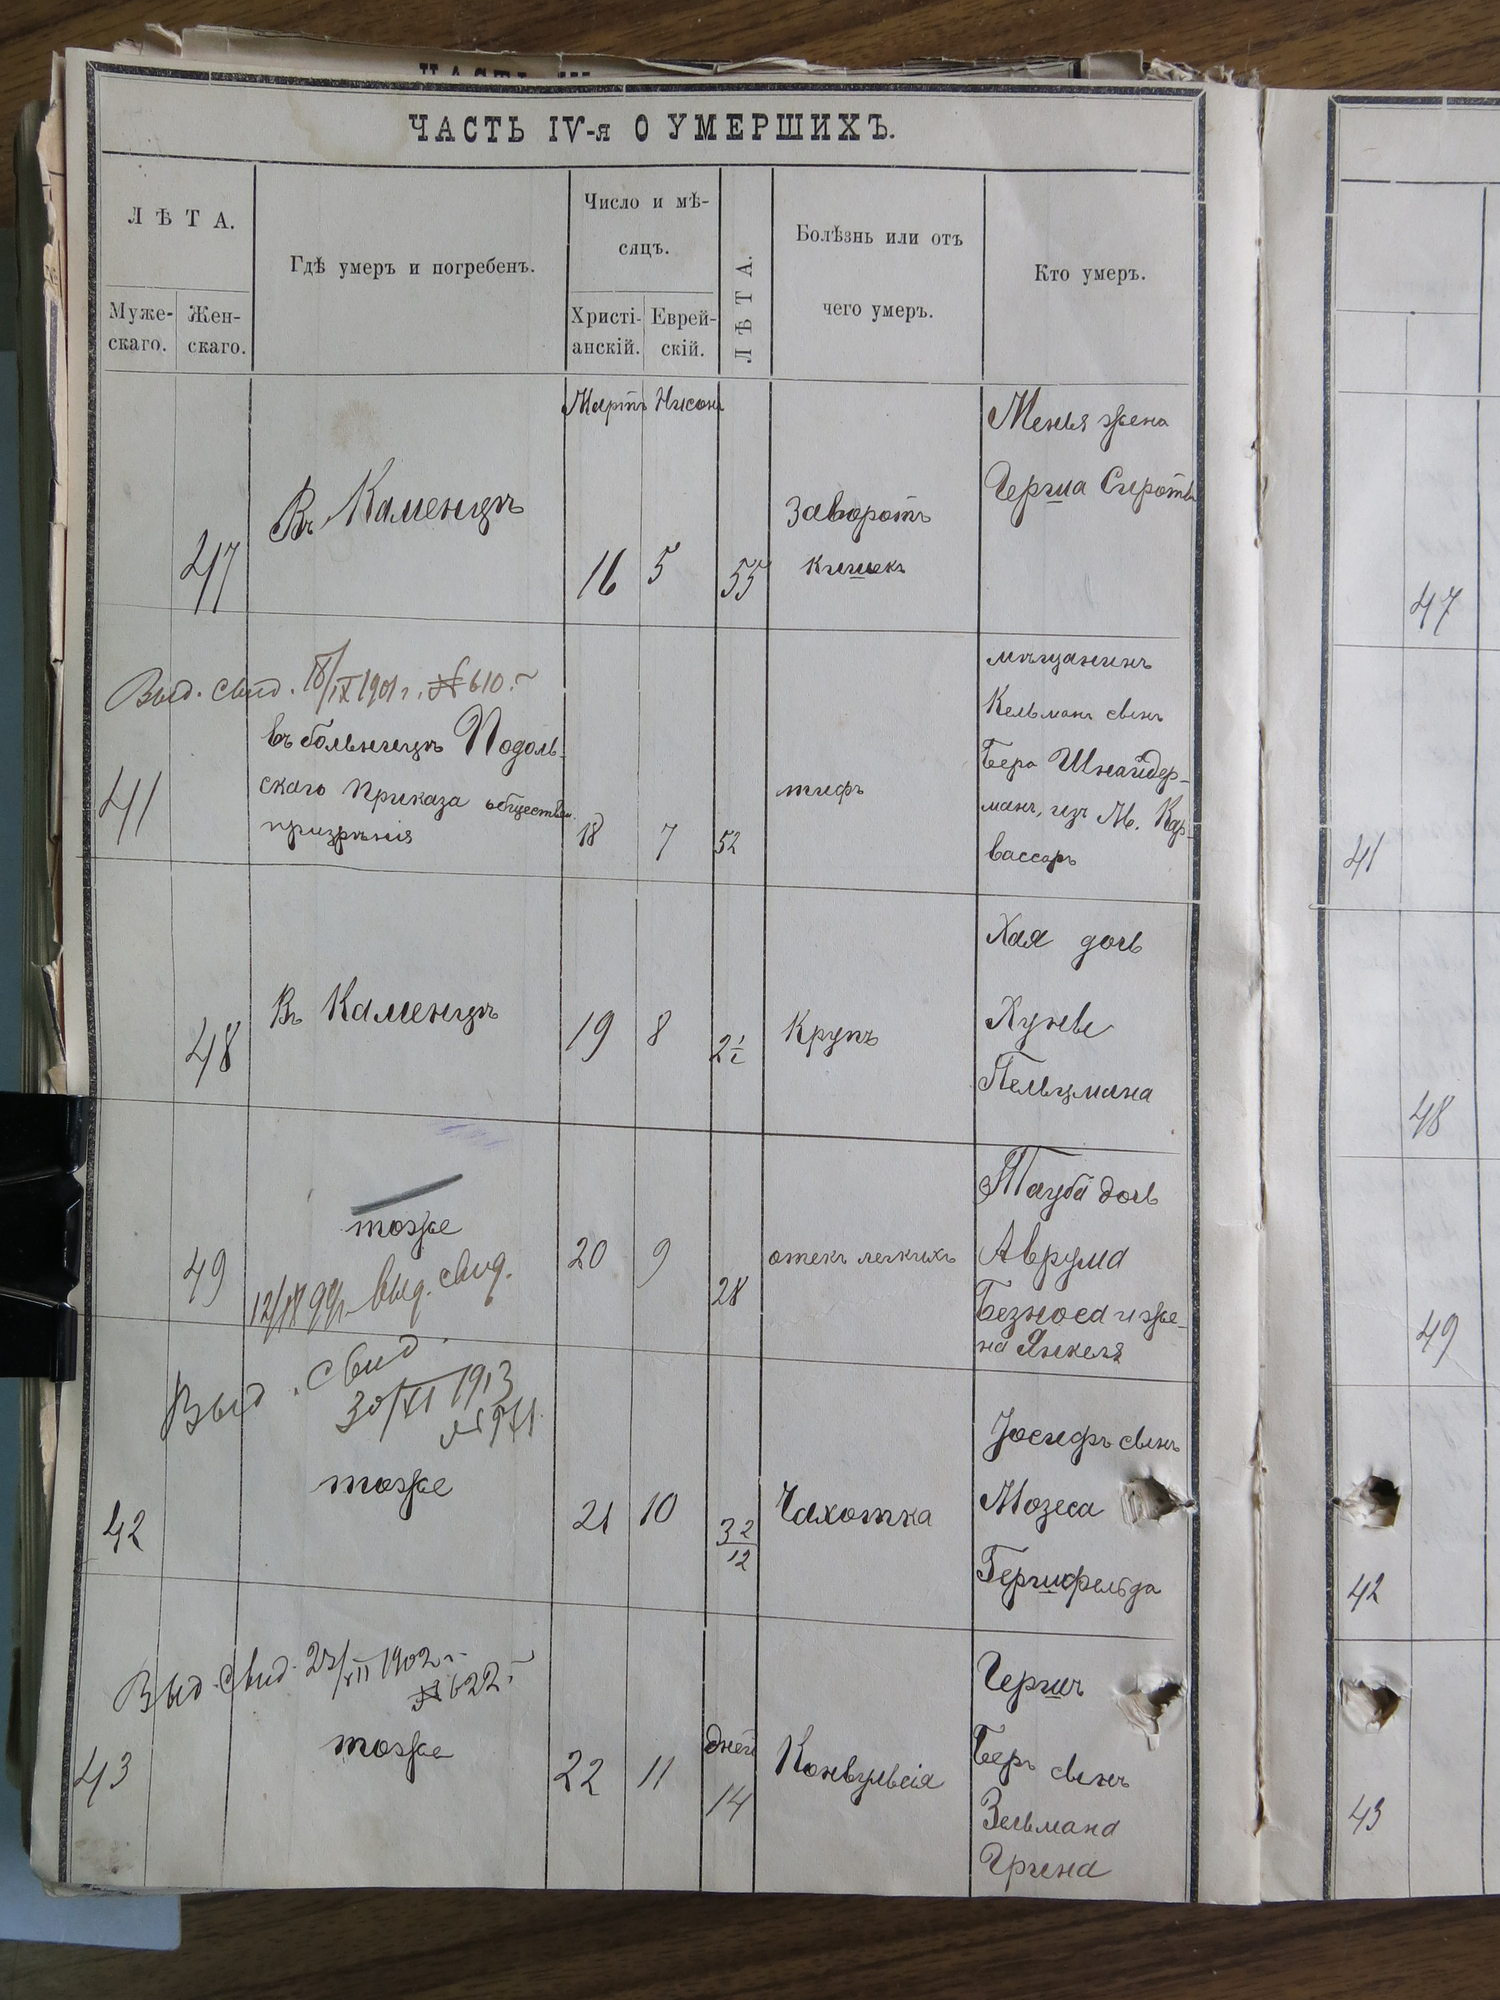 ЧАСТЬ IV-я О УМЕРШИХЪ.
ЛѢТА.
Мужескаго.
Женскаго.
Гдѣ умеръ и погребенъ.
Число и мѣсяцъ.
Христі-
анскій.
Еврей-
скій.
ЛѢТА.
Болѣзнь или отъ
чего умеръ.
Кто умеръ.
Мартъ Нисонъ
47
Въ Каменцѣ
16
5
55
Заворотъ
кишекъ
Менья жена
Герша Сироты
47
Выд. свид. 18/IX 1901 г. № 610.
41
въ больницѣ Подоль-
скаго Приказа обществен.
призрѣнія
18
7
52
тифъ
мѣщанинъ
Кельманъ сынъ
Бера Шнайдер-
манъ, изъ М. Кар-
вассаръ
41
48
Въ Каменцѣ
19
8
2½
Крупъ
Хая дочь
Хуны
Пельцмана
48
49
тоже
12/IX 99 г. выд. свид.
20
9
28
отекъ легкихъ
Тауба дочь
Аврума
Безноса и же-
на Янкеля
49
Выд. свид.
30/XI 1913
№ 971
42
тоже
21
10
3 2/12
Чахотка
Іосифъ сынъ
Мозеса
Гершфельда
42
Выд. свид. 23/XII 1902 г.
№ 622.
43
тоже
22
11
дней
14
Конвульсія
Гершъ
Беръ сынъ
Зельмана
Грина
43